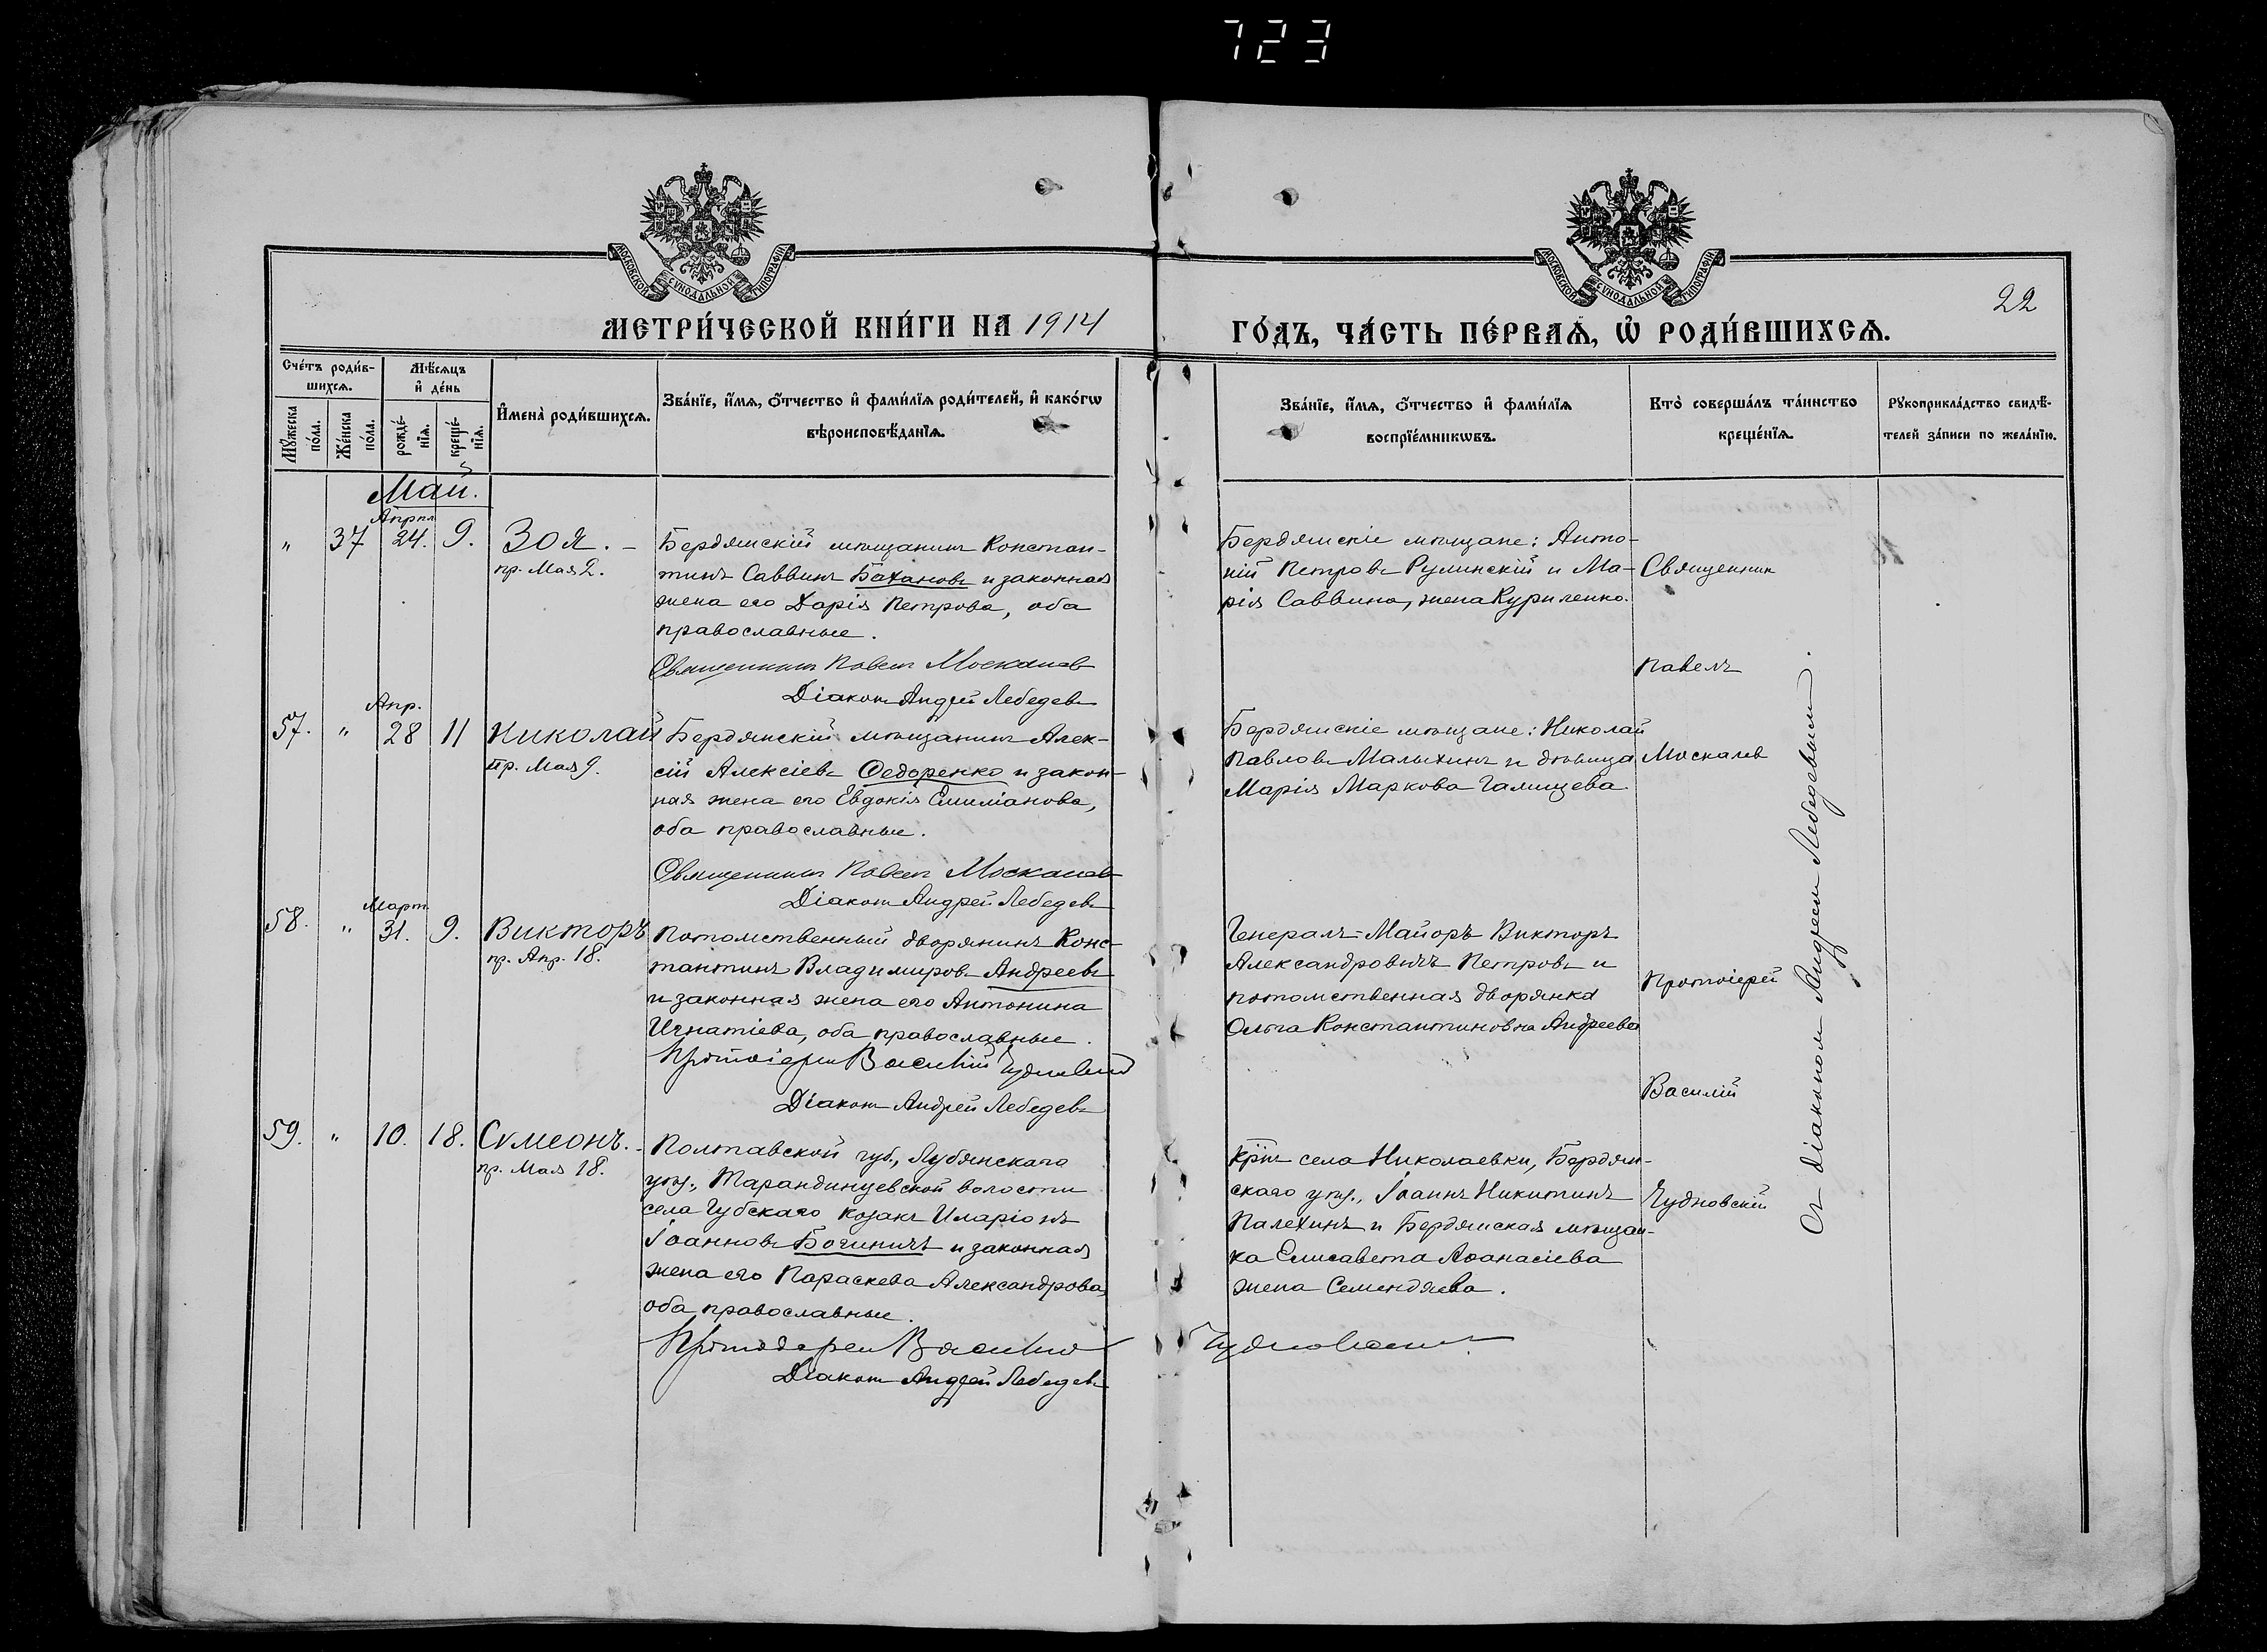 723
МОСКОВСКОЙ СѴНОДАЛЬНОЙ ТИПОГРАФІИ
МОСКОВСКОЙ СѴНОДАЛЬНОЙ ТИПОГРАФІИ
22
МЕТРИ́ЧЕСКОЙ КНИ́ГИ НА 1914
ГО́ДЪ, ЧА́СТЬ ПЕ́РВАѦ, Ѡ҆ РОДИ́ВШИХСѦ.
Сче́тъ роди́в-
шихсѧ.
Мѣ́сѧцъ
и҆ де́нь
Мꙋ́жеска
по́ла.
Же́нска
по́ла.
рожде́-
нїѧ.
креще́-
нїѧ.
И҆мена̀ роди́вшихсѧ.
Зва́нїе, и҆́мѧ, ѻ҆́тчество и҆ фами́лїѧ роди́телей, и҆ како́гѡ
вѣроисповѣ́данїѧ.
Зва́нїе, и҆́мѧ, ѻ҆́тчество и҆ фами́лїѧ
воспрїе́мникѡвъ.
Кто̀ соверша́лъ та́инство
креще́нїѧ.
Рꙋкоприкла́дство свидѣ́-
телей за́писи по жела́нїю.
Май.
Апрѣл
" 37 24. 9. Зоя. –
пр. Мая 2.
Бердянскій мѣщанинъ Констан-
тинъ Саввинъ Баханов и законная
жена его Дарія Петрова, оба
православные.
Священникъ Павелъ Москалев
Діаконъ Андрей Лебедевъ
Бердянскіе мѣщане: Анто-
ній Петровъ Рулинскій и Ма-
рія Саввина, жена Куриленко.
Священник
Павелъ
Москалев
Апр.
57. " 28 11 Николай
пр. Мая 9.
Бердянскій мѣщанинъ Алек-
сій Алексіевъ Федоренко и закон-
ная жена его Евдокія Емиліанова,
оба православные.
Священникъ Павелъ Москалев
Діаконъ Андрей Лебедевъ
Бердянскіе мѣщане: Николай
Павловъ Малыхинъ и дѣвица
Марія Маркова Галищева
Март.
58. " 31. 9. Викторъ
пр. Апр. 18.
Потомственный дворянинъ Конс-
тантинъ Владимировъ Андреевъ
и законная жена его Антонина
Игнатіева, оба православные.
Протоіерей Василій Чудновскій
Діаконъ Андрей Лебедевъ
Генералъ-Майоръ Викторъ
Александровичъ Петровъ и
потомственная дворянка
Ольга Константиновна Андреева
Протоіерей
Василій
Чудновскій
59. " 10. 18. Сѵмеонъ. –
пр. Мая 18.
Полтавской губ., Лубянскаго
уѣз., Тарандинцевской волости
села Губскаго козакъ Иларіонъ
Іоанновъ Богиничъ и законная
жена его Параскева Александрова,
оба православные.
Протоіерей Василій Чудновскій
Діаконъ Андрей Лебедевъ
Крнъ села Николаевки, Бердян-
скаго уѣз., Іоаннъ Никитинъ
Палехинъ и Бердянская мѣщан-
ка Елисавета Аѳанасіева
жена Семендяева.
Съ діакономъ Андреемъ Лебедевымъ.